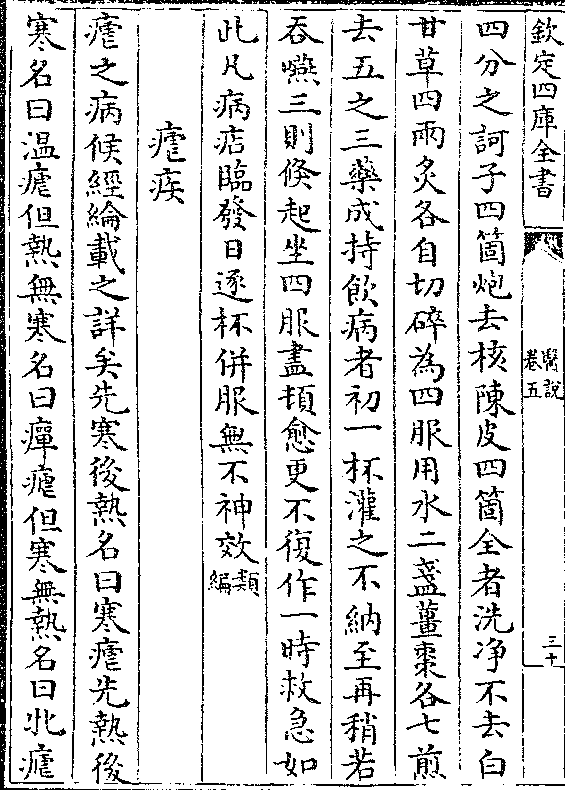 欽定四庫全書
醫說
卷五
三十
四分之訶子四箇炮去核陳皮四箇全者洗净不去白
甘草四兩炙各自切碎為四服用水二盞薑棗各七煎
去五之三藥成持飲病者初一杯灌之不納至再稍若
吞嚥三則倐起坐四服盡頓愈更不復作一時救急如
此凡病痁臨發日逐杯併服無不神效類編
瘧疾
瘧之病候經綸載之詳矣先寒後熱名曰寒瘧先熱後
寒名曰温瘧但熱無寒名曰癉瘧但寒無熱名曰牝瘧